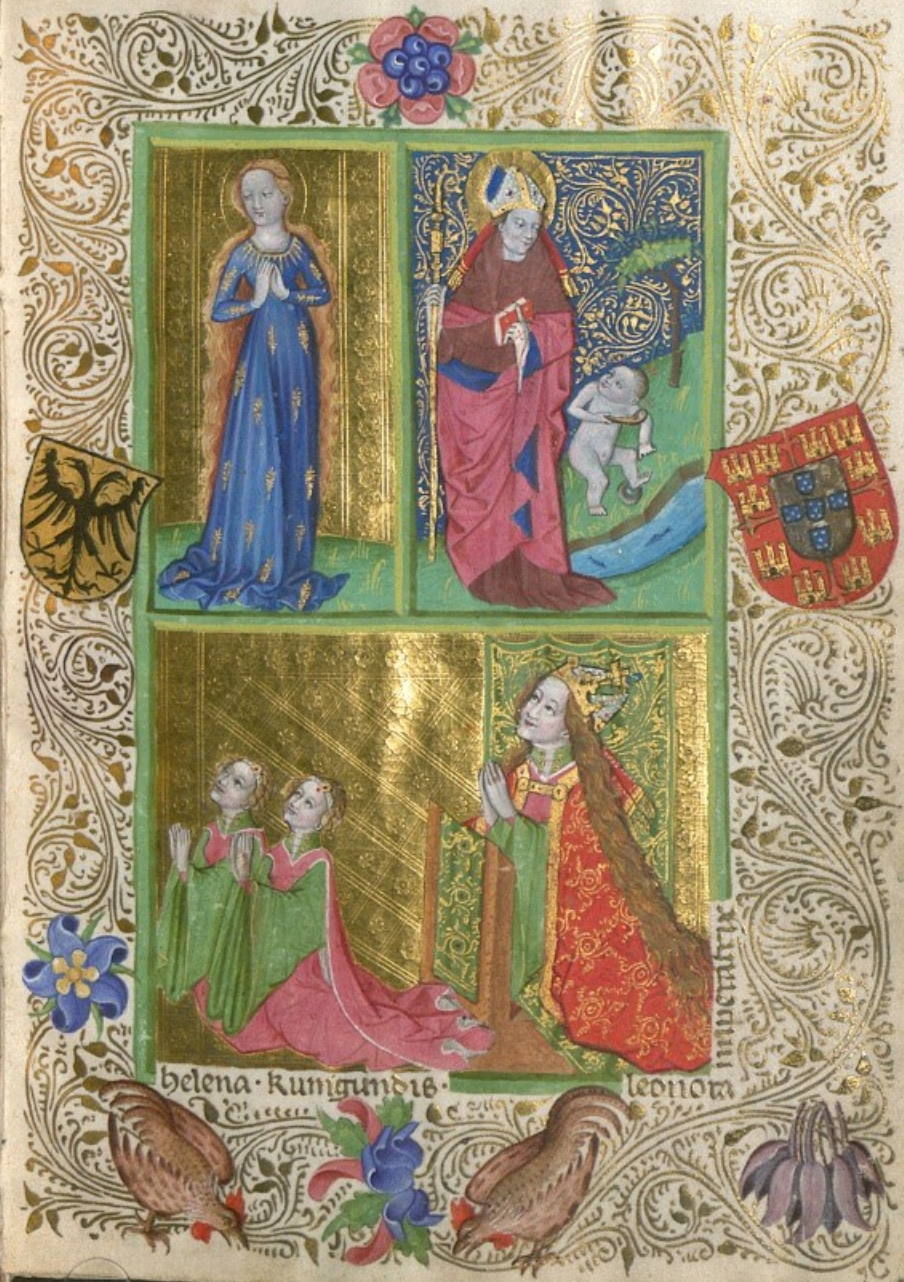 helena · kunigundis ·
leonora
imperatrix